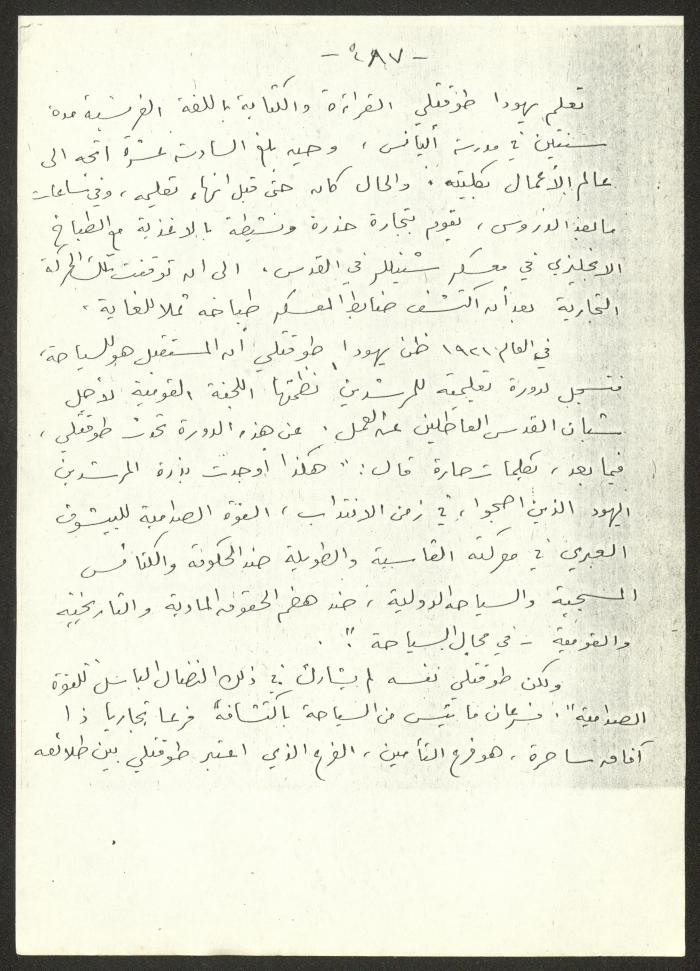 - ٢٨٧ -
تعلم يهودا طوقتلي القراءة والكتابة باللغة الفرنسية مدة
سنتين في مدرسة أليانس، وحين بلغ السادسة عشرة اتجه الى
عالم الأعمال بكليته. والحال كان حتى قبل انهاء تعليمه، وفي ساعات
ما بعد الدروس، يقوم بتجارة حذرة ونشيطة بالاغذية مع الطباخ
الانجليزي في معسكر شنيللر في القدس، الى ان توقفت تلك الحركة
التجارية بعد أن اكتشف ضابط المعسكر طباخه ثملا للغاية.
في العام ١٩٢١ ظن يهودا طوقتلي أن المستقبل هو للسياحة،
فتسجل لدورة تعليمية للمرشدين نظمتها اللجنة القومية لأجل
شبان القدس العاطلين عن العمل. عن هذه الدورة تحدث طوقتلي،
فيما بعد، بكلمات حارة قال: "هكذا أوجدت بذرة المرشدين
اليهود الذين اصبحوا، في زمن الانتداب، القوة الصدامية لليشوف
العبري في معركته القاسية والطويلة ضد الحكومة والكنائس
المسيحية والسياحة الدولية، ضد هضم الحقوق المادية والتاريخية
والقومية - في مجال السياحة".
ولكن طوقتلي نفسه لم يشارك في ذلك النضال الباسل "للقوة
الصدامية". فسرعان ما يئس من السياحة باكتشافه فرعا تجاريا ذا
آفاق ساحرة، هو فرع التأمين، الفرع الذي اعتبر طوقتلي بين طلائعه